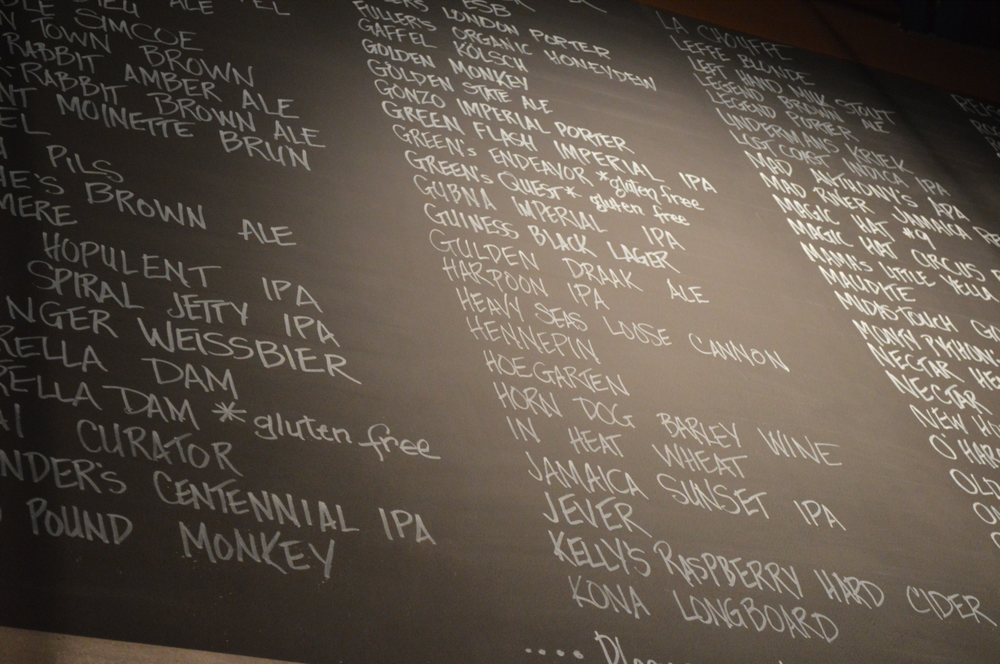 ALE
SIMCOE
TOWN BROWN
RABBIT AMBER ALE
RABBIT BROWN ALE
MOINETTE BRUN
PILS
BROWN ALE
MERE
HOPULENT IPA
SPIRAL JETTY IPA
WEISSBIER
DAM
DAM *gluten free
CURATOR
CENTENNIAL IPA
POUND MONKEY
ESB
FULLER'S LONDON PORTER
FULLERS ORGANIC HONEYDEW
GAFFEL KÖLSCH
GOLDEN MONKEY
GOLDEN STATE ALE
GONZO IMPERIAL PORTER
GREEN FLASH IMPERIAL IPA
GREEN'S ENDEAVOR *gluten free
GREEN'S QUEST * gluten free
GUBNA IMPERIAL IPA
GUINESS BLACK LAGER
GULDEN DRAAK ALE
HARPOON IPA
HEAVY SEAS LOOSE CANNON
HENNEPIN
HOEGARTEN
HORN DOG BARLEY WINE
IN HEAT WHEAT
JAMAICA SUNSET IPA
JEVER
KELLY'S RASPBERRY HARD CIDER
KONA LONGBOARD
....
LA CHOUFFE
LEFFE BLONDE
LEFT HAND MILK STOUT
LEGEND BROWN ALE
LEGEND PORTER
LINDEMANS KRIEK
LOST COAST INDICA IPA
MAD ANTHONY'S APA
MAD RIVER JAMAICA
MAGIC HAT #9
MAGIC HAT CIRCUS
MAMA'S LITTLE YELLA
MAUDITE
MIDAS-TOUCH
MONTY PYTHON'S
NECTAR
NECTAR
NEW
O'HARA